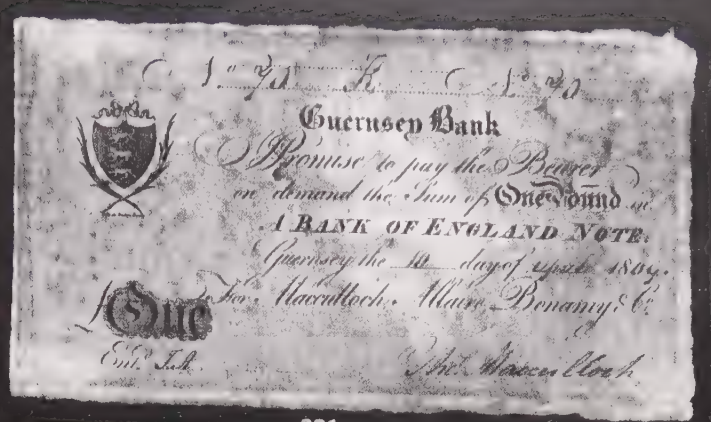 No. 70 K No. 70
Guernsey Bank
I Promise to pay the Bearer
on demand the Sum of One Pound in
A BANK OF ENGLAND NOTE.
Guernsey the 10 day of April 1809.
For Macculloch, Allaire, Bonamy & Co.
£One
Entd.
Thos. Macculloch